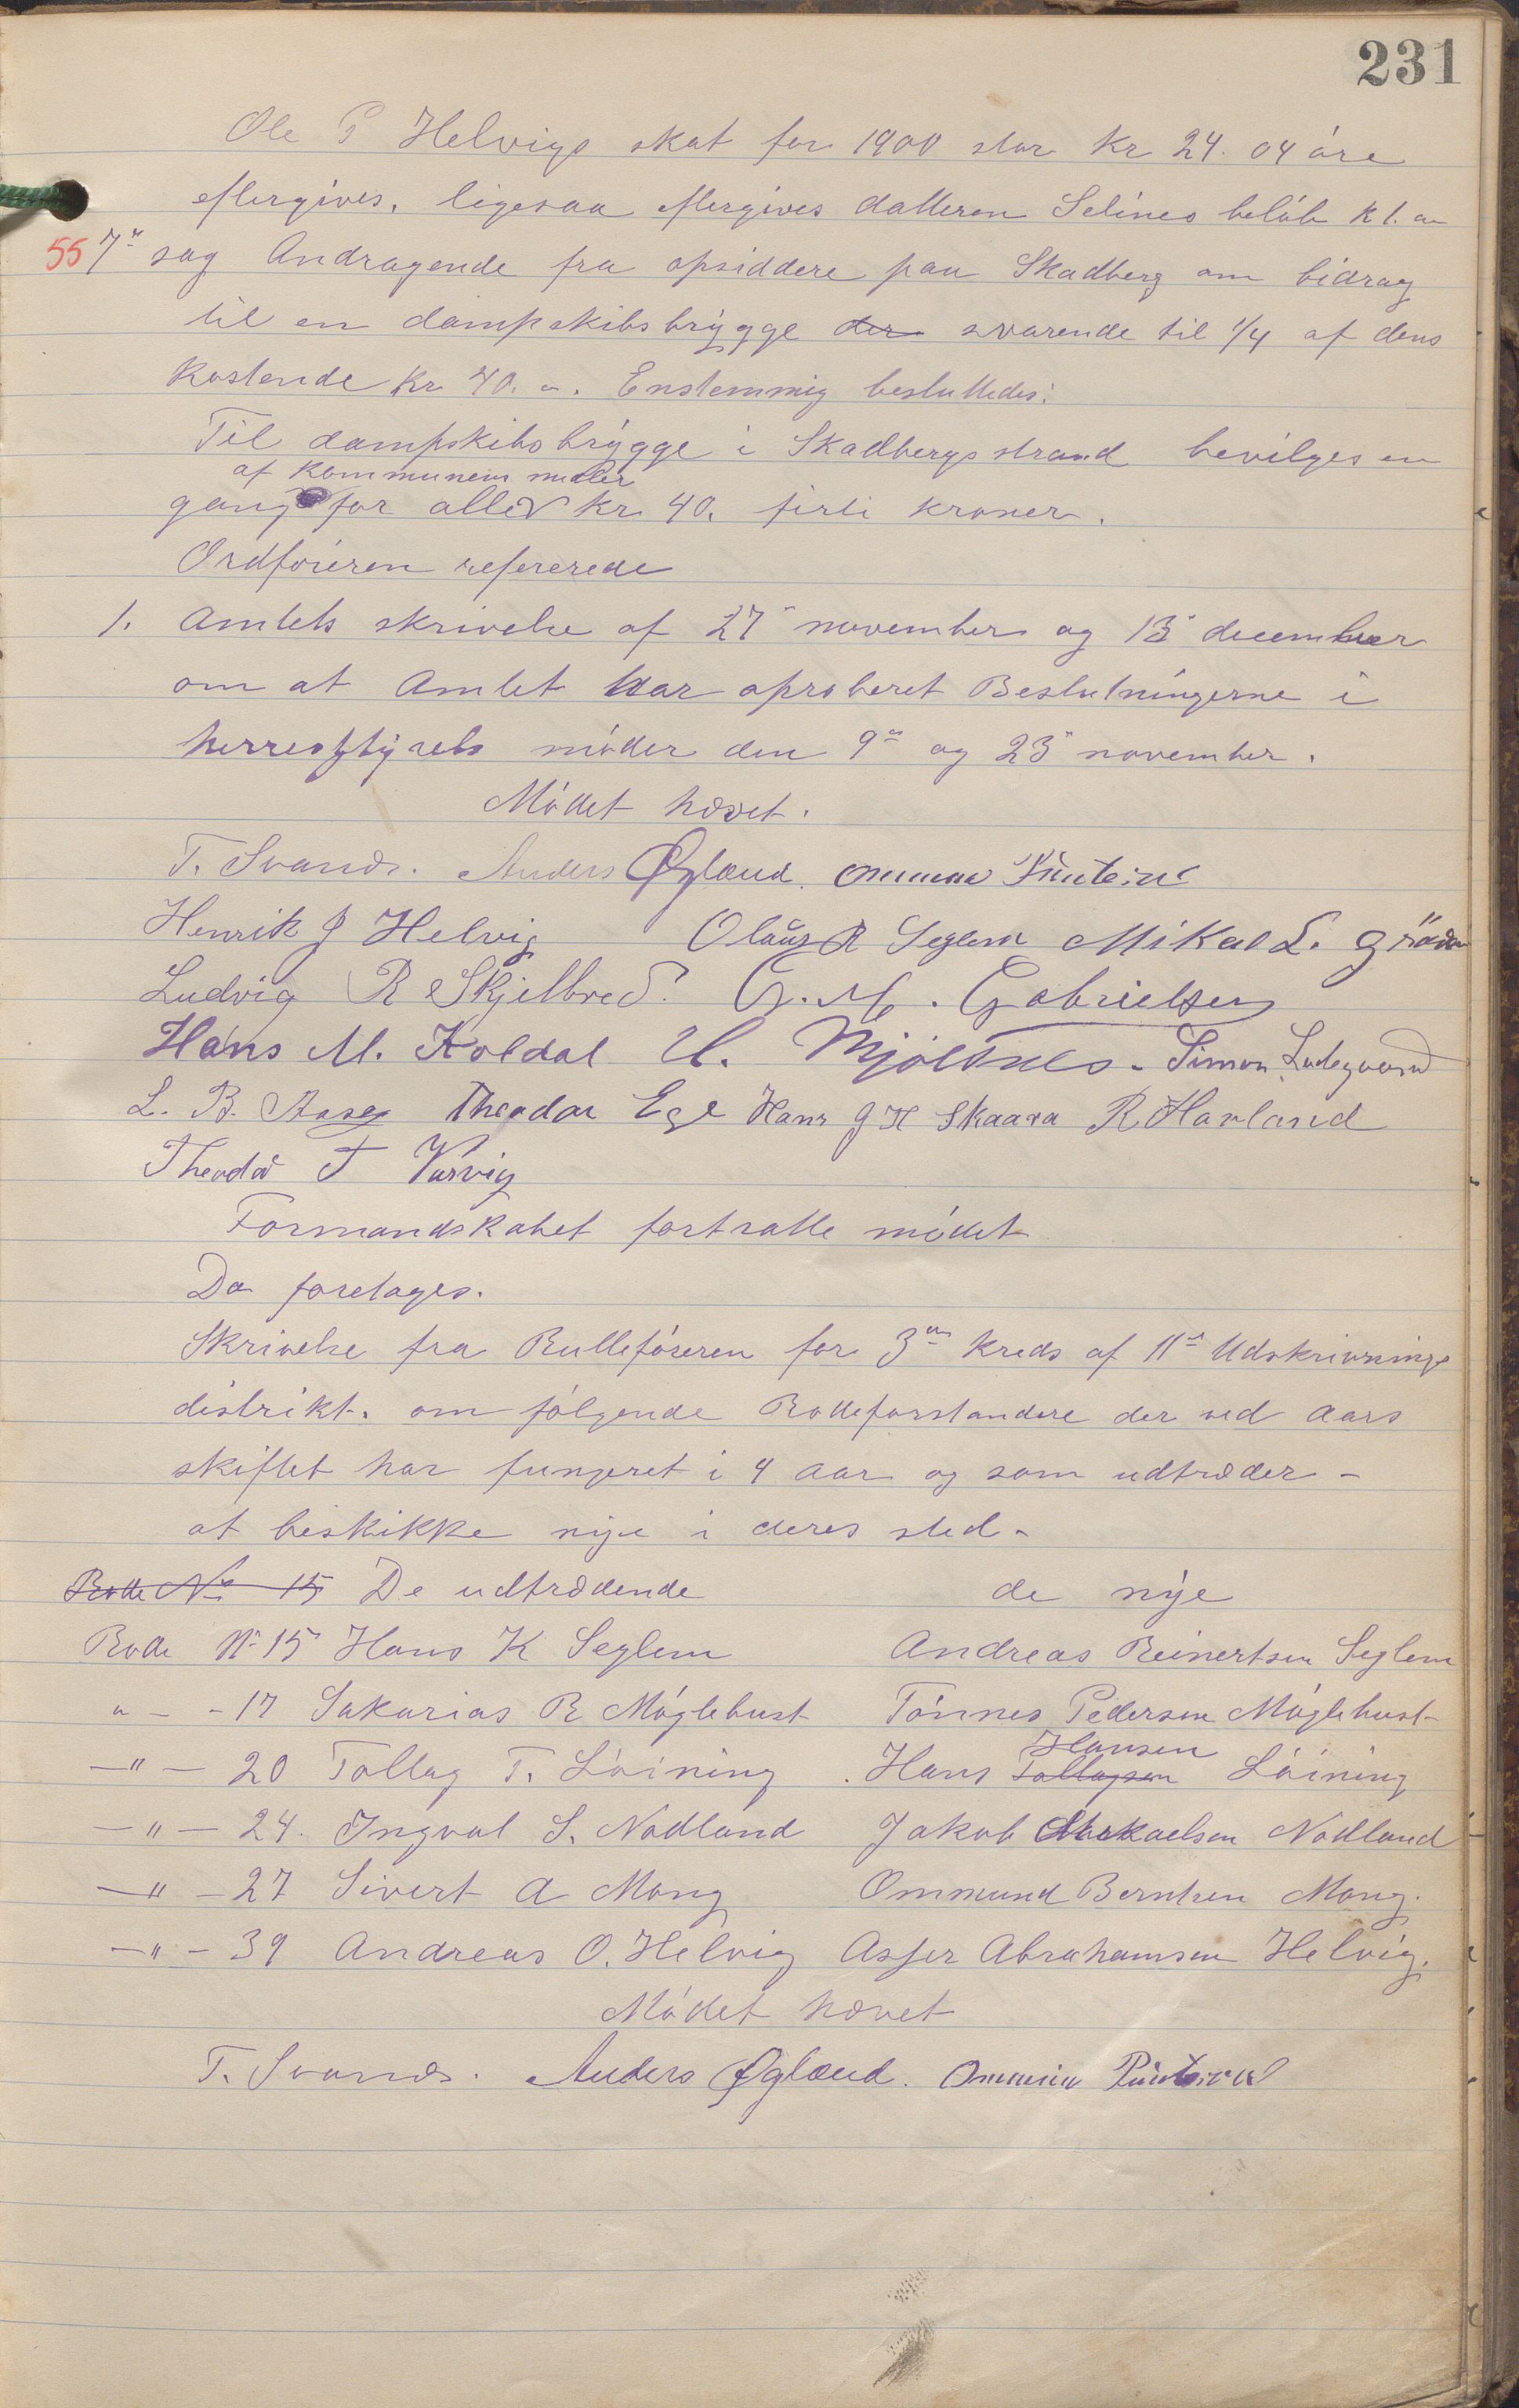 231
Ole P Helvigs skat for 1900 stor Kr 24.04 øre
eftergives. ligesaa eftergives datteren Selines beløb k 1. "
55 7de sag Andragende fra opsiddere paa Skadberg om bidrag
til en dampskibsbrygge der svarende til 1/4 af dens
kostende Kr 40. ". Enstemmig besluttedes:
Til dampskibsbrygge i Skadbergsstrand bevilges en
af kommunens midler
gang for alle kr. 40. firti kroner.
Ordføreren refererede
1. Amtets skrivelse af 27" november og 13" december
om at Amtet har aproberet Beslutningerne i
herredsstyrets møder den 9de og 23" november.
Mødet hævet.
T. Svanes. Anders Øgland. Ommun
Henrik J Helvig Olaus R Seglem Mikal L. Grødem
Ludvig R Skjelbred. G. M. Gabrielsen
Hans M. Koldal U. Mjølsnes. Simon Ladegaard
L. B. Aase Theodor Ege Hans J H Skaara R Havland
Theodor T Varvig
Formandskabet fortsatte mødet
Da foretages.
Skrivelse fra Rulleføreren for 3die kreds af 11te Udskrivnings
distrikt. om følgende Rodeforstandere der ved aars
skiftet har fungeret i 4 aar og som udtræder –
at beskikke nye i deres sted.
Rode No 15 De udtrædende de nye
Rode No 15 Hans K Seglem Andreas Reinertsen Seglem
" – - 17 Sakarias R Møglebust Tønnes Pedersen Møglebust
Hansen
— " — 20 Tollag T. Løining Hans Tollagsen Løining
— " — 24. Ingval S. Nodland Jakob Mikaelsen Nodland
— " — 27 Sivert A Mong Ommund Berntsen Mong.
— " — 39 Andreas O. Helvig Asser Abrahamsen Helvig.
Mødet hævet
T. Svanes. Anders Øgland. Ommun